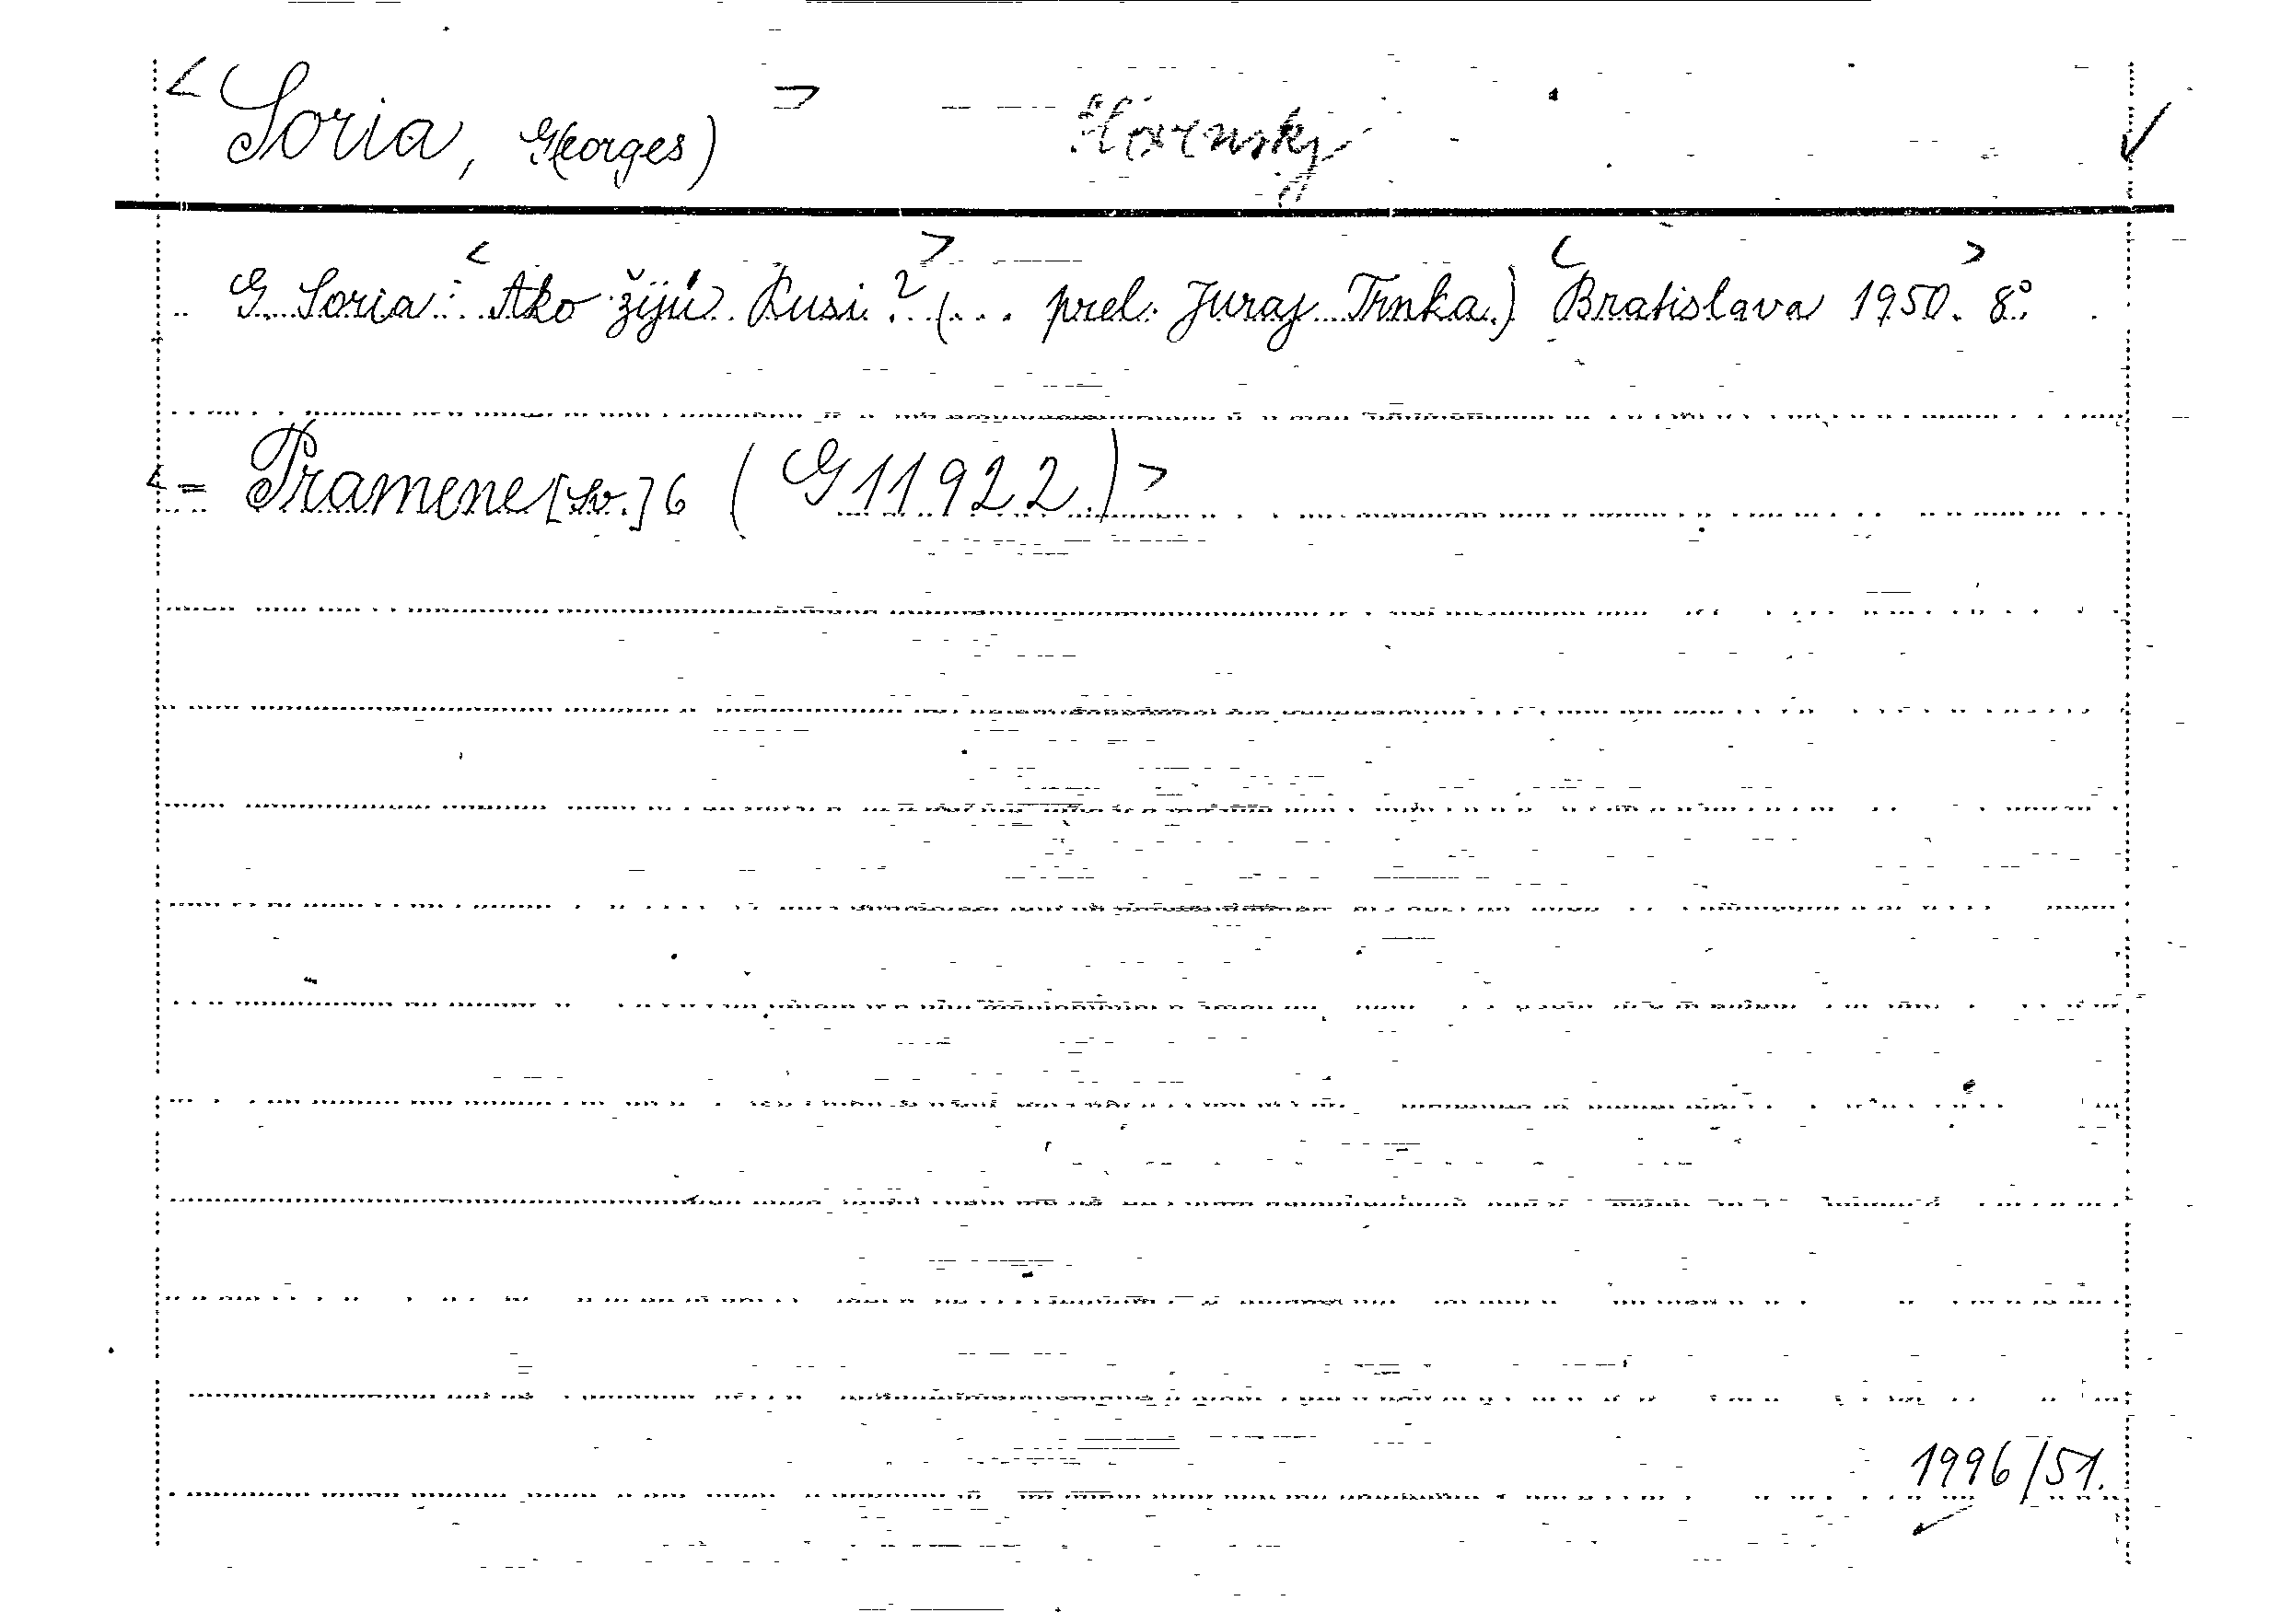 < Soria, G(eorges) > Slovensky ✓
G. Soria: <Ako žijú Rusi?> (... prel. Juraj Trnka.) <Bratislava 1950.> 8°.
<= Pramene [Sv.] 6 (G 11.922.)>
1996/51.